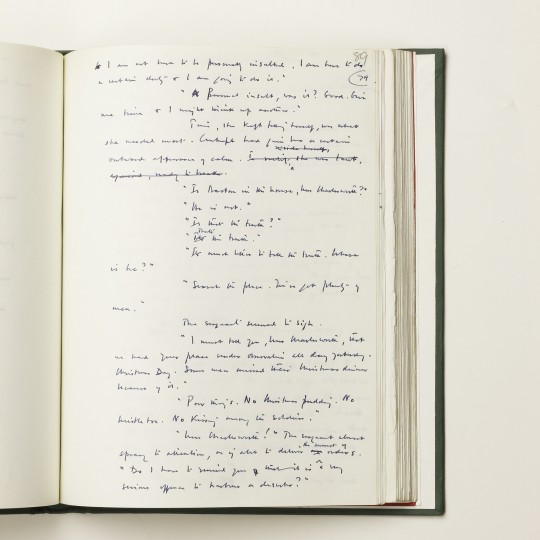 80
79
I am not here to be personally insulted. I am here to do
a certain duty & I am going to do it."
"A Personal insult, was it? Good. Give
me time & I might think up another."
Time, she kept telling herself, was what
she needed most. had given her a certain
outward appearance of calm. In reality, she was taut,
ready to break.
"Is Bastow in the house, Mrs Charlesworth?"
"He is not."
"Is that the truth?"
the truth."
much better to tell the truth. Where
is he?"
"Search the place. You've got plenty of
men."
The sergeant seemed to sigh.
"I must tell you, Mrs Charlesworth, that
we had your place under observation all day yesterday.
Christmas Day. Some men missed their Christmas dinner
because of it."
"Poor things. No Christmas pudding. No
mistletoe. No kissing among the soldiers."
"Mrs Charlesworth!" The sergeant almost
sprang to attention, as if about to deliver the sternest of orders.
"Do I have to remind you that it is a very
serious offence to harbour a deserter?"